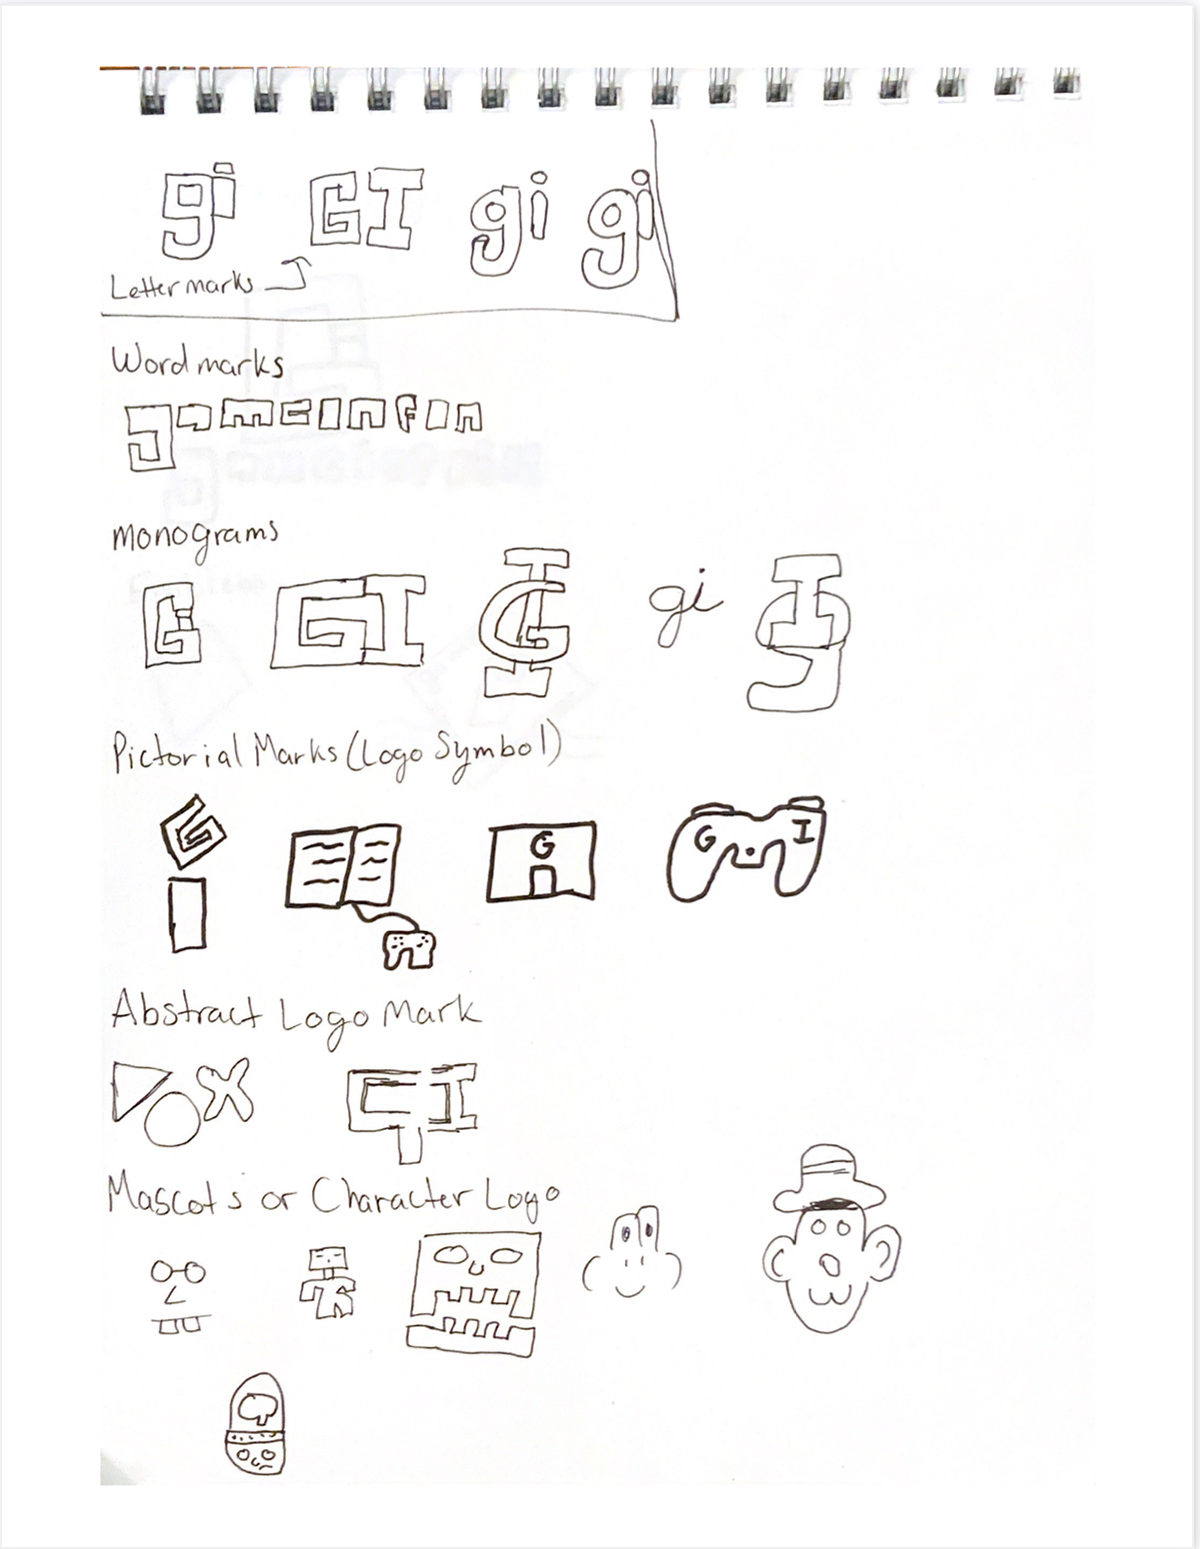 gi GI gi gi
Lettermarks
Wordmarks
gameinfon
Monograms
GI GI GI gi gI
Pictorial Marks (Logo Symbol)
G
G
G I
Abstract Logo Mark
GI
Mascots or Character Logo